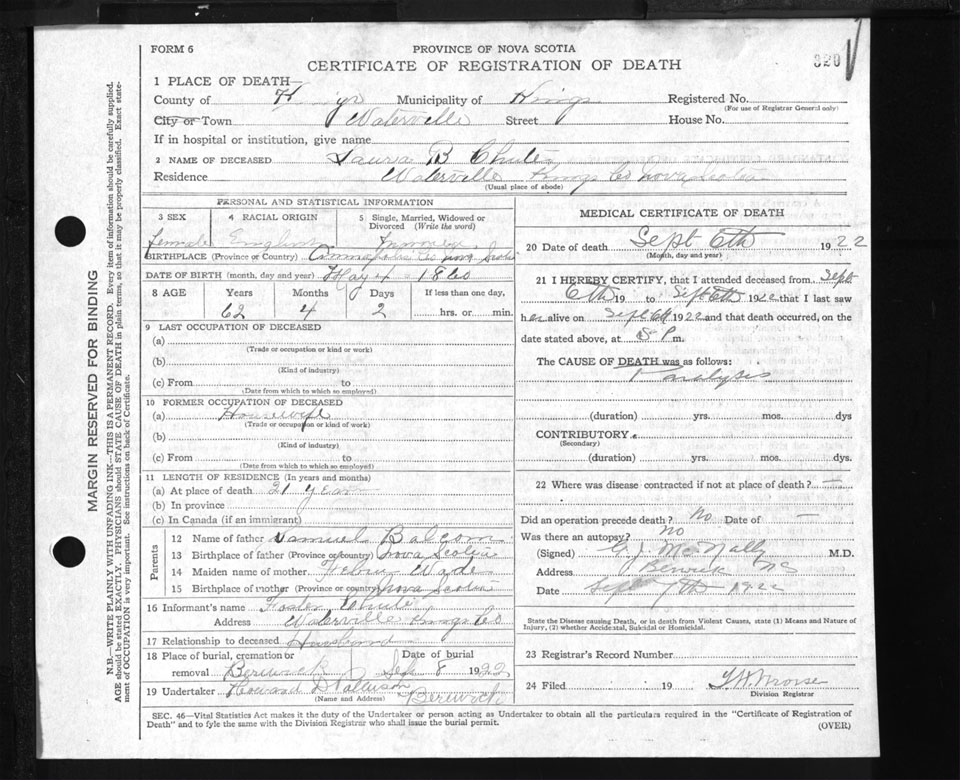 FORM 6
PROVINCE OF NOVA SCOTIA
CERTIFICATE OF REGISTRATION OF DEATH
320
1 PLACE OF DEATH—
County of Municipality of Kings Registered No.
(For use of Registrar General only)
City or Town Waterville Street House No.
If in hospital or institution, give name
2 NAME OF DECEASED Laura B Chute
Residence Waterville Kings Co Nova Scotia
(Usual place of abode)
PERSONAL AND STATISTICAL INFORMATION
3 SEX 4 RACIAL ORIGIN 5 Single, Married, Widowed or Divorced (Write the word)
female English
BIRTHPLACE (Province or Country) Annapolis Co Nova Scotia
DATE OF BIRTH (month, day and year) May 4 1860
8 AGE Years Months Days If less than one day,
62 4 2 hrs. or min.
9 LAST OCCUPATION OF DECEASED
(a)
(Trade or occupation or kind or work)
(b)
(Kind of industry)
(c) From to
(Date from which to which so employed)
10 FORMER OCCUPATION OF DECEASED
(a) Housewife
(Trade or occupation or kind of work)
(b)
(Kind of industry)
(c) From to
(Date from which to which so employed)
11 LENGTH OF RESIDENCE (In years and months)
(a) At place of death 21 years
(b) In province
(c) In Canada (if an immigrant)
Parents
12 Name of father Samuel Balcom
13 Birthplace of father (Province or country) Nova Scotia
14 Maiden name of mother Wade
15 Birthplace of mother (Province or country) Nova Scotia
16 Informant's name Foster Chute
Address Waterville Kings Co
17 Relationship to deceased Husband
18 Place of burial, cremation or Date of burial
removal Berwick Sept 8 1922
19 Undertaker Howard Berwick
(Name and Address)
MEDICAL CERTIFICATE OF DEATH
20 Date of death Sept 6th 1922
(Month, day and year)
21 I HEREBY CERTIFY, that I attended deceased from Sept
6th 19 to Sept 6th 1922 that I last saw
her alive on Sept 6th 1922 and that death occurred, on the
date stated above, at P m.
The CAUSE OF DEATH was as follows:
Paralysis
(duration) yrs. mos. dys
CONTRIBUTORY
(Secondary)
(duration) yrs. mos. dys.
22 Where was disease contracted if not at place of death? —
Did an operation precede death? No Date of —
Was there an autopsy? No
(Signed) G. J. McNally M.D.
Address Berwick NS
Date Sept 7th 1922
State the Disease causing Death, or in death from Violent Causes, state (1) Means and Nature of
Injury, (2) whether Accidental, Suicidal or Homicidal.
23 Registrar's Record Number
24 Filed 19 Morse
Division Registrar
SEC. 46—Vital Statistics Act makes it the duty of the Undertaker or person acting as Undertaker to obtain all the particulars required in the "Certificate of Registration of
Death" and to fyle the same with the Division Registrar who shall issue the burial permit.
(OVER)
MARGIN RESERVED FOR BINDING
N.B.—WRITE PLAINLY WITH UNFADING INK—THIS IS A PERMANENT RECORD. Every item of information should be carefully supplied.
AGE should be stated EXACTLY. PHYSICIANS should STATE CAUSE OF DEATH in plain terms, so that it may be properly classified. Exact state-
ment of OCCUPATION is very important. See instructions on back of Certificate.